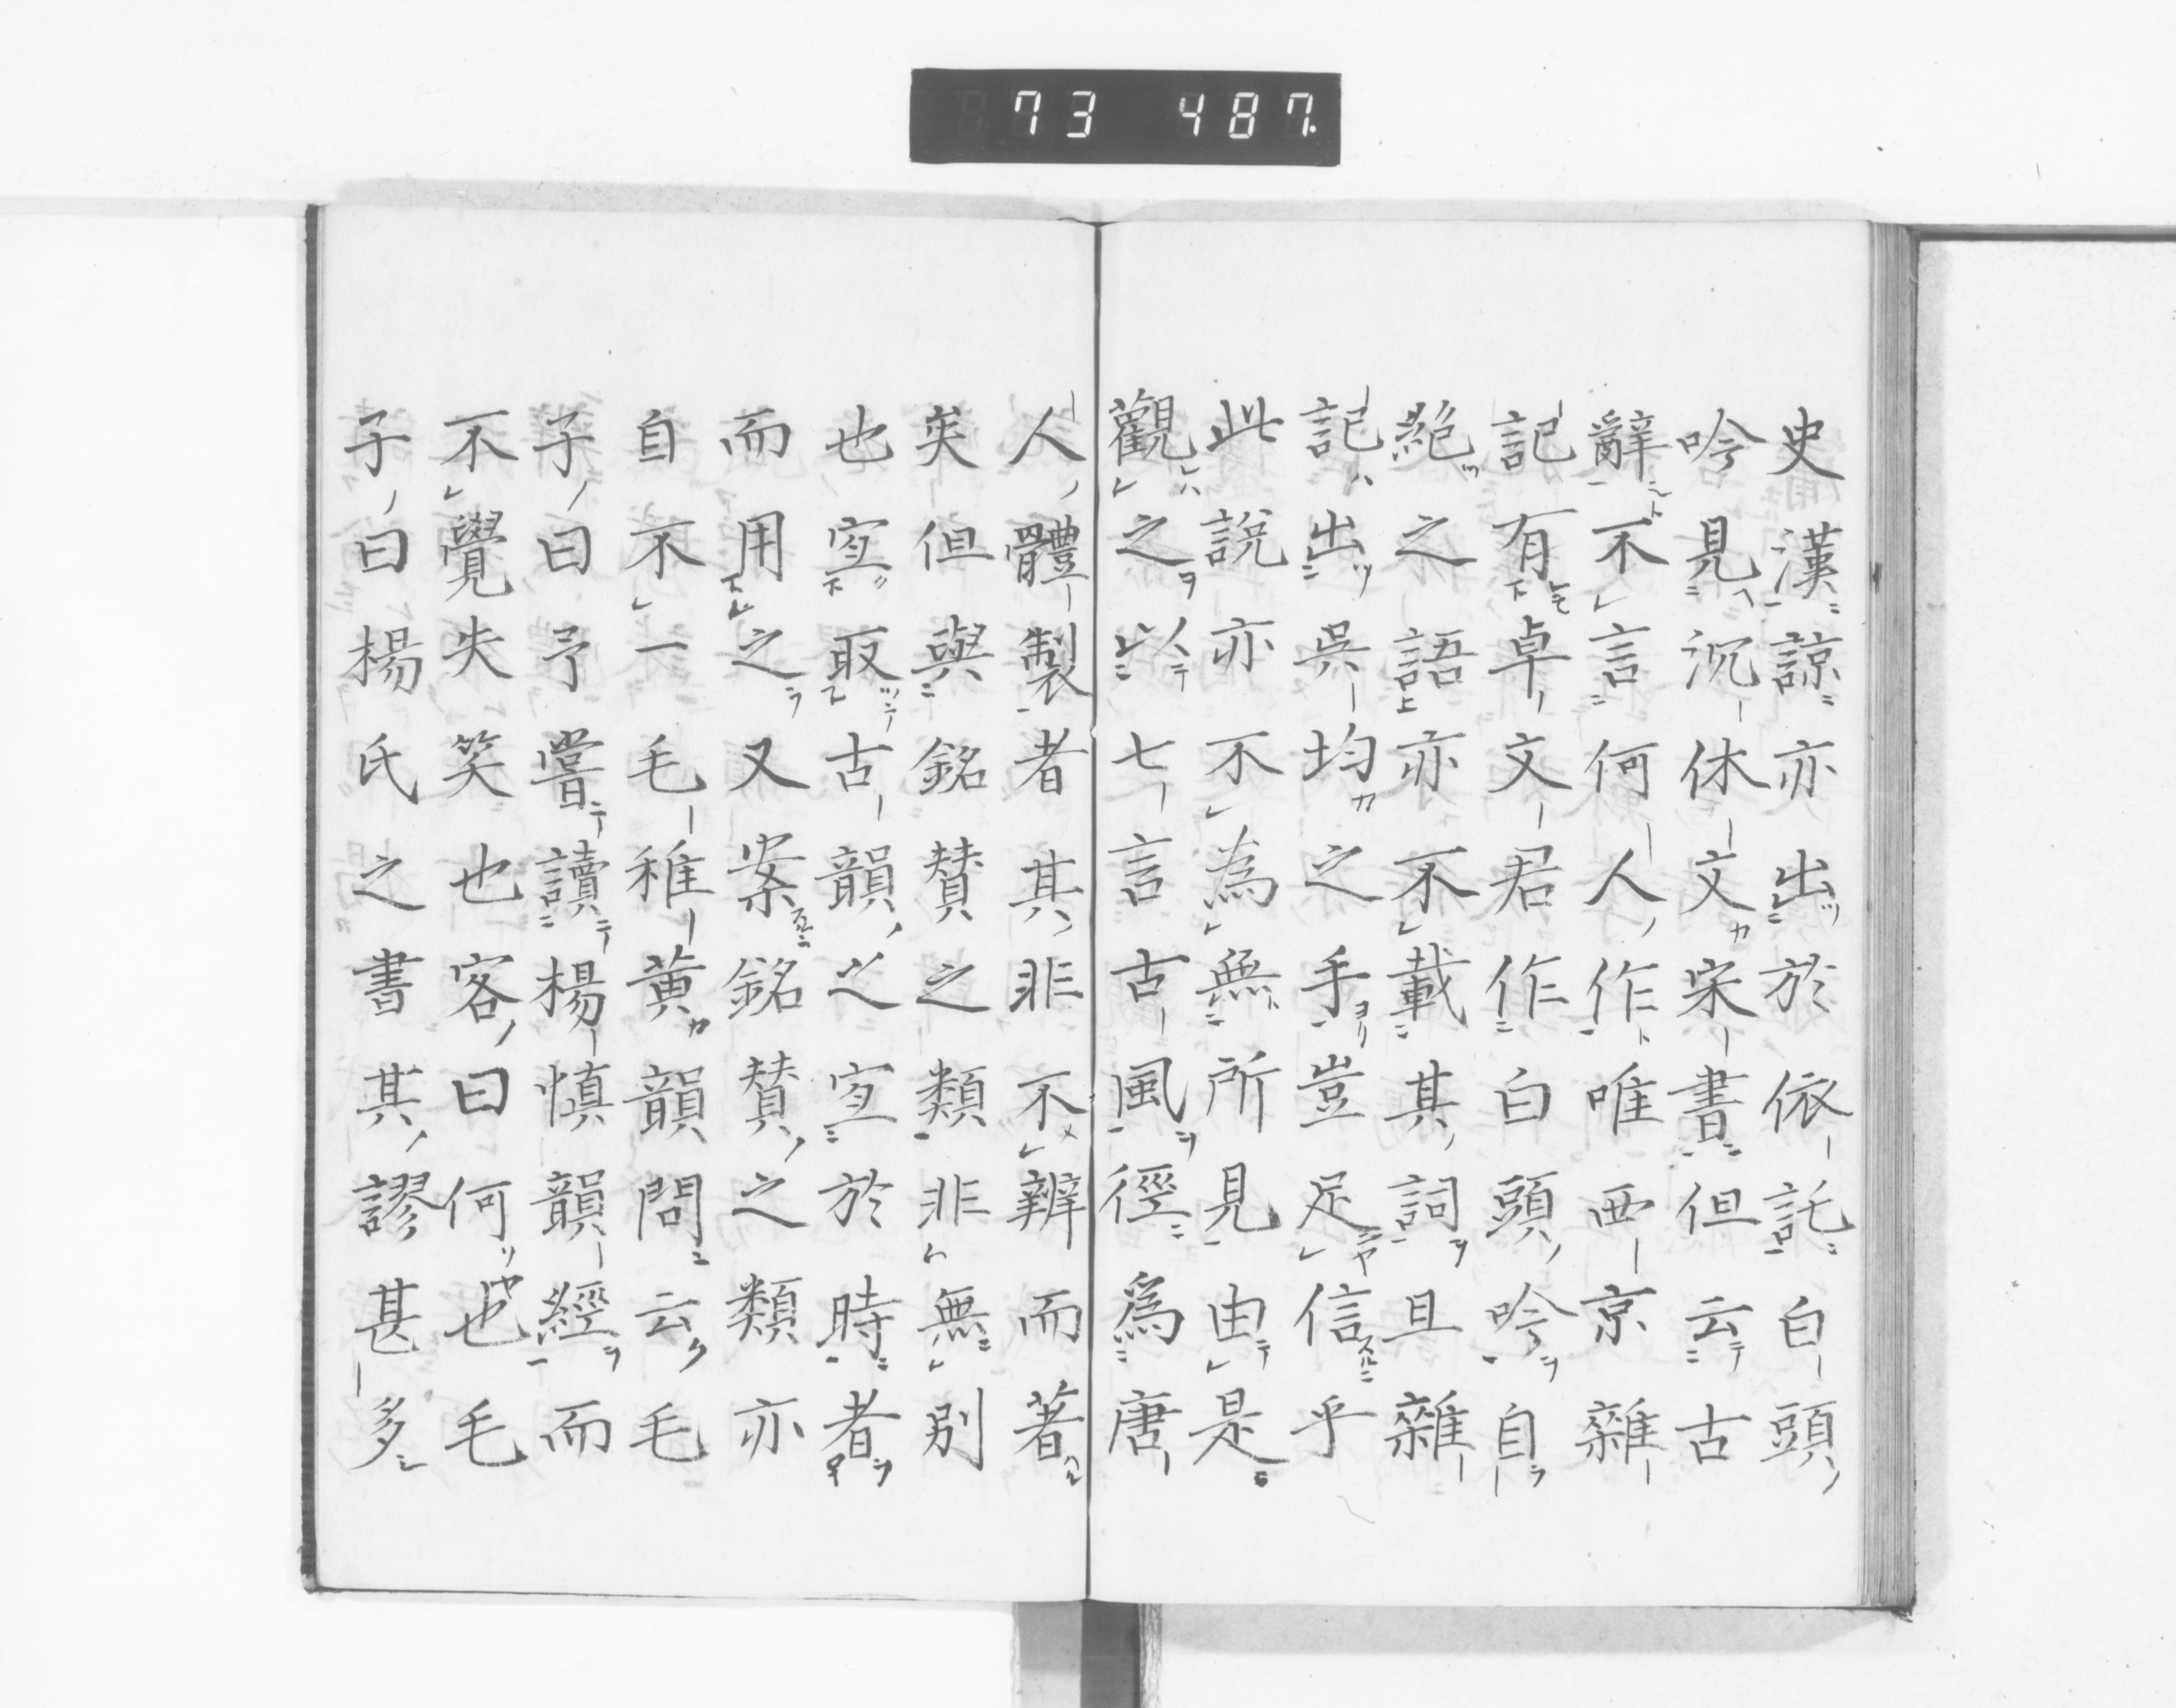 73 487.
史漢諒亦出於依託白頭
吟見沉休文宋書但云古
辭不言何人作唯西京雜
記有卓文君作白頭吟自
絕之語亦不載其詞且雜
記出吳均之手豈足信乎
此說亦不為無所見由是
觀之以七言古風徑為唐
人體製者其非不辨而著
矣但與銘賛之類非無別
也寔取古韻之寔於時者
而用之又案銘賛之類亦
自不一毛稚黄韻問云毛
子曰予嘗讀楊慎韻經而
不覺失笑也客曰何也毛
子曰楊氏之書其謬甚多